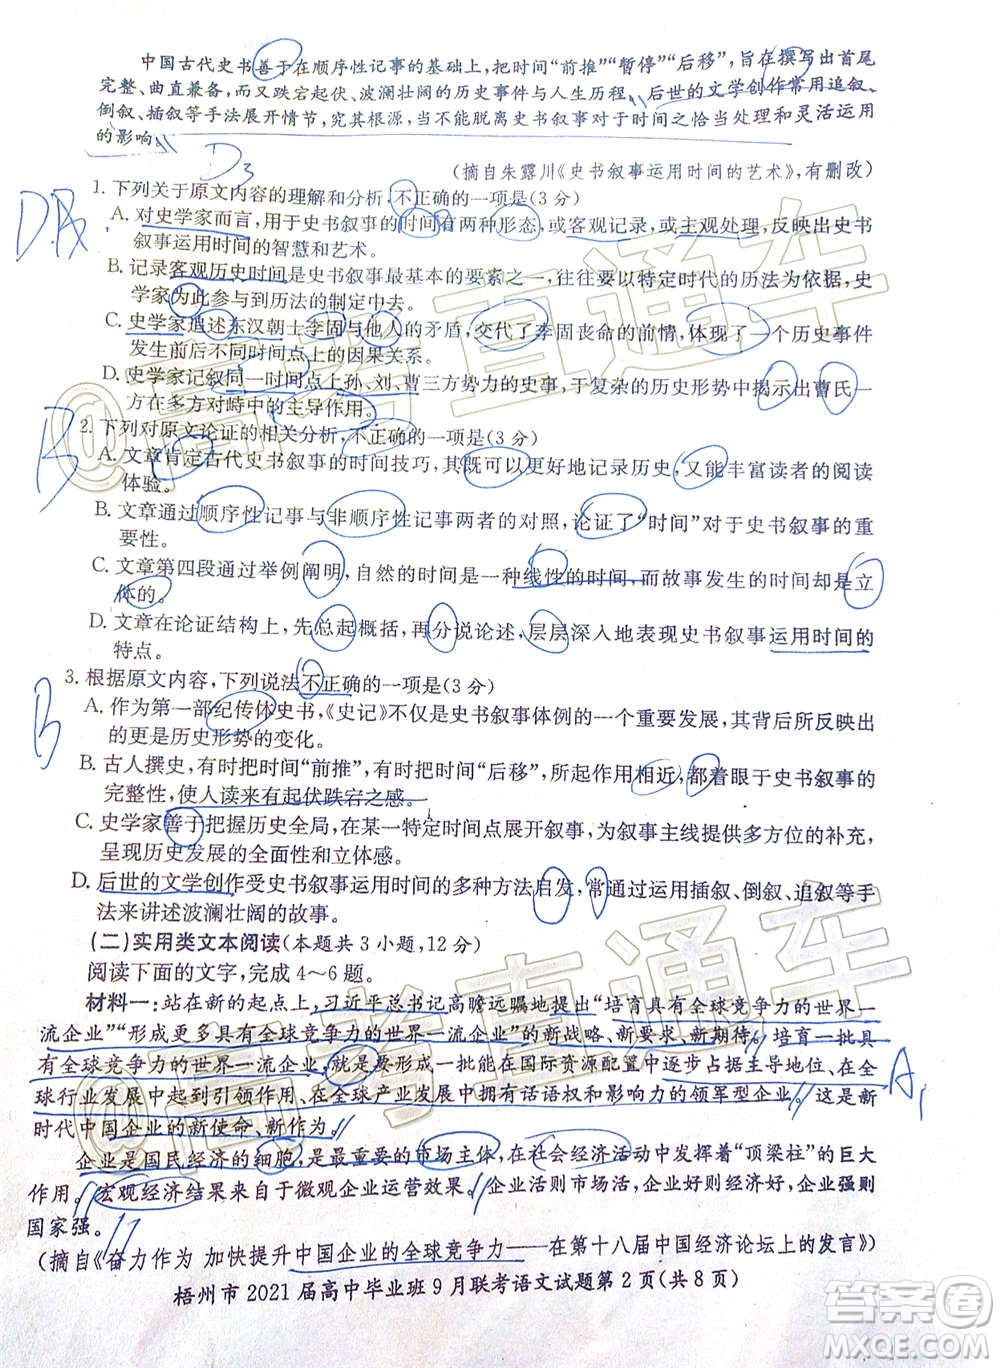 中国古代史书善于在顺序性记事的基础上,把时间“前推”“暂停”“后移”,旨在撰写出首尾
完整、曲直兼备,而又跌宕起伏、波澜壮阔的历史事件与人生历程。后世的文学创作常用追叙、
倒叙、插叙等手法展开情节,究其根源,当不能脱离史书叙事对于时间之恰当处理和灵活运用
的影响。
(摘自朱露川《史书叙事运用时间的艺术》,有删改)
D3
1. 下列关于原文内容的理解和分析,不正确的一项是(3分)
A. 对史学家而言,用于史书叙事的时间有两种形态,或客观记录,或主观处理,反映出史书
叙事运用时间的智慧和艺术。
B. 记录客观历史时间是史书叙事最基本的要素之一,往往要以特定时代的历法为准,史
学家为此参与到历法的制定中去。
C. 史学家追述东汉朝士李固与他人的矛盾,交代了李固丧命的前情,体现了一个历史事件
发生前后不同时间点上的因果关系。
D. 史学家记叙同一时间点上孙、刘、曹三方势力的史事,于复杂的历史形势中揭示出曹氏一
方在多方对峙中的主导作用。
B
2. 下列对原文论证的相关分析,不正确的一项是(3分)
A. 文章肯定古代史书叙事的时间技巧,其既可以更好地记录历史,又能丰富读者的阅读
体验。
B. 文章通过顺序性记事与非顺序性记事两者的对照,论证了“时间”对于史书叙事的重
要性。
C. 文章第四段通过举例阐明,自然的时间是一种线性的时间,而故事发生的时间却是立
体的。
D. 文章在论证结构上,先总起概括,再分说论述,层层深入地表现史书叙事运用时间的
特点。
B
3. 根据原文内容,下列说法不正确的一项是(3分)
A. 作为第一部纪传体史书,《史记》不仅是史书叙事体例的一个重要发展,其背后所反映出
的更是历史形势的变化。
B. 古人撰史,有时把时间“前推”,有时把时间“后移”,所起作用相近,都着眼于史书叙事的
完整性,使人读来有起伏跌宕之感。
C. 史学家善于把握历史全局,在某一特定时间点展开叙事,为叙事主线提供多方位的补充,
呈现历史发展的全面性和立体感。
D. 后世的文学创作受史书叙事运用时间的多种方法启发,常通过运用插叙、倒叙、追叙等手
法来讲述波澜壮阔的故事。
(二)实用类文本阅读(本题共3小题,12分)
阅读下面的文字,完成4~6题。
材料一:站在新的起点上,习近平总书记高瞻远瞩地提出“培育具有全球竞争力的世界一
流企业”“形成更多具有全球竞争力的世界一流企业”的新战略、新要求、新期待。培育一批具
有全球竞争力的世界一流企业,就是要形成一批能在国际资源配置中逐步占据主导地位、在全
球行业发展中起到引领作用、在全球产业发展中拥有话语权和影响力的领军型企业。这是新
时代中国企业的新使命、新作为。
企业是国民经济的细胞,是最重要的市场主体,在社会经济活动中发挥着“顶梁柱”的巨大
作用。宏观经济结果来自于微观企业运营效果。企业活则市场活,企业好则经济好,企业强则
国家强。
(摘自《奋力作为 加快提升中国企业的全球竞争力——在第十八届中国经济论坛上的发言》)
梧州市2021届高中毕业班9月联考语文试题第2页(共8页)
答案圈
MXQE.COM
@高考直通车
@高考直通车